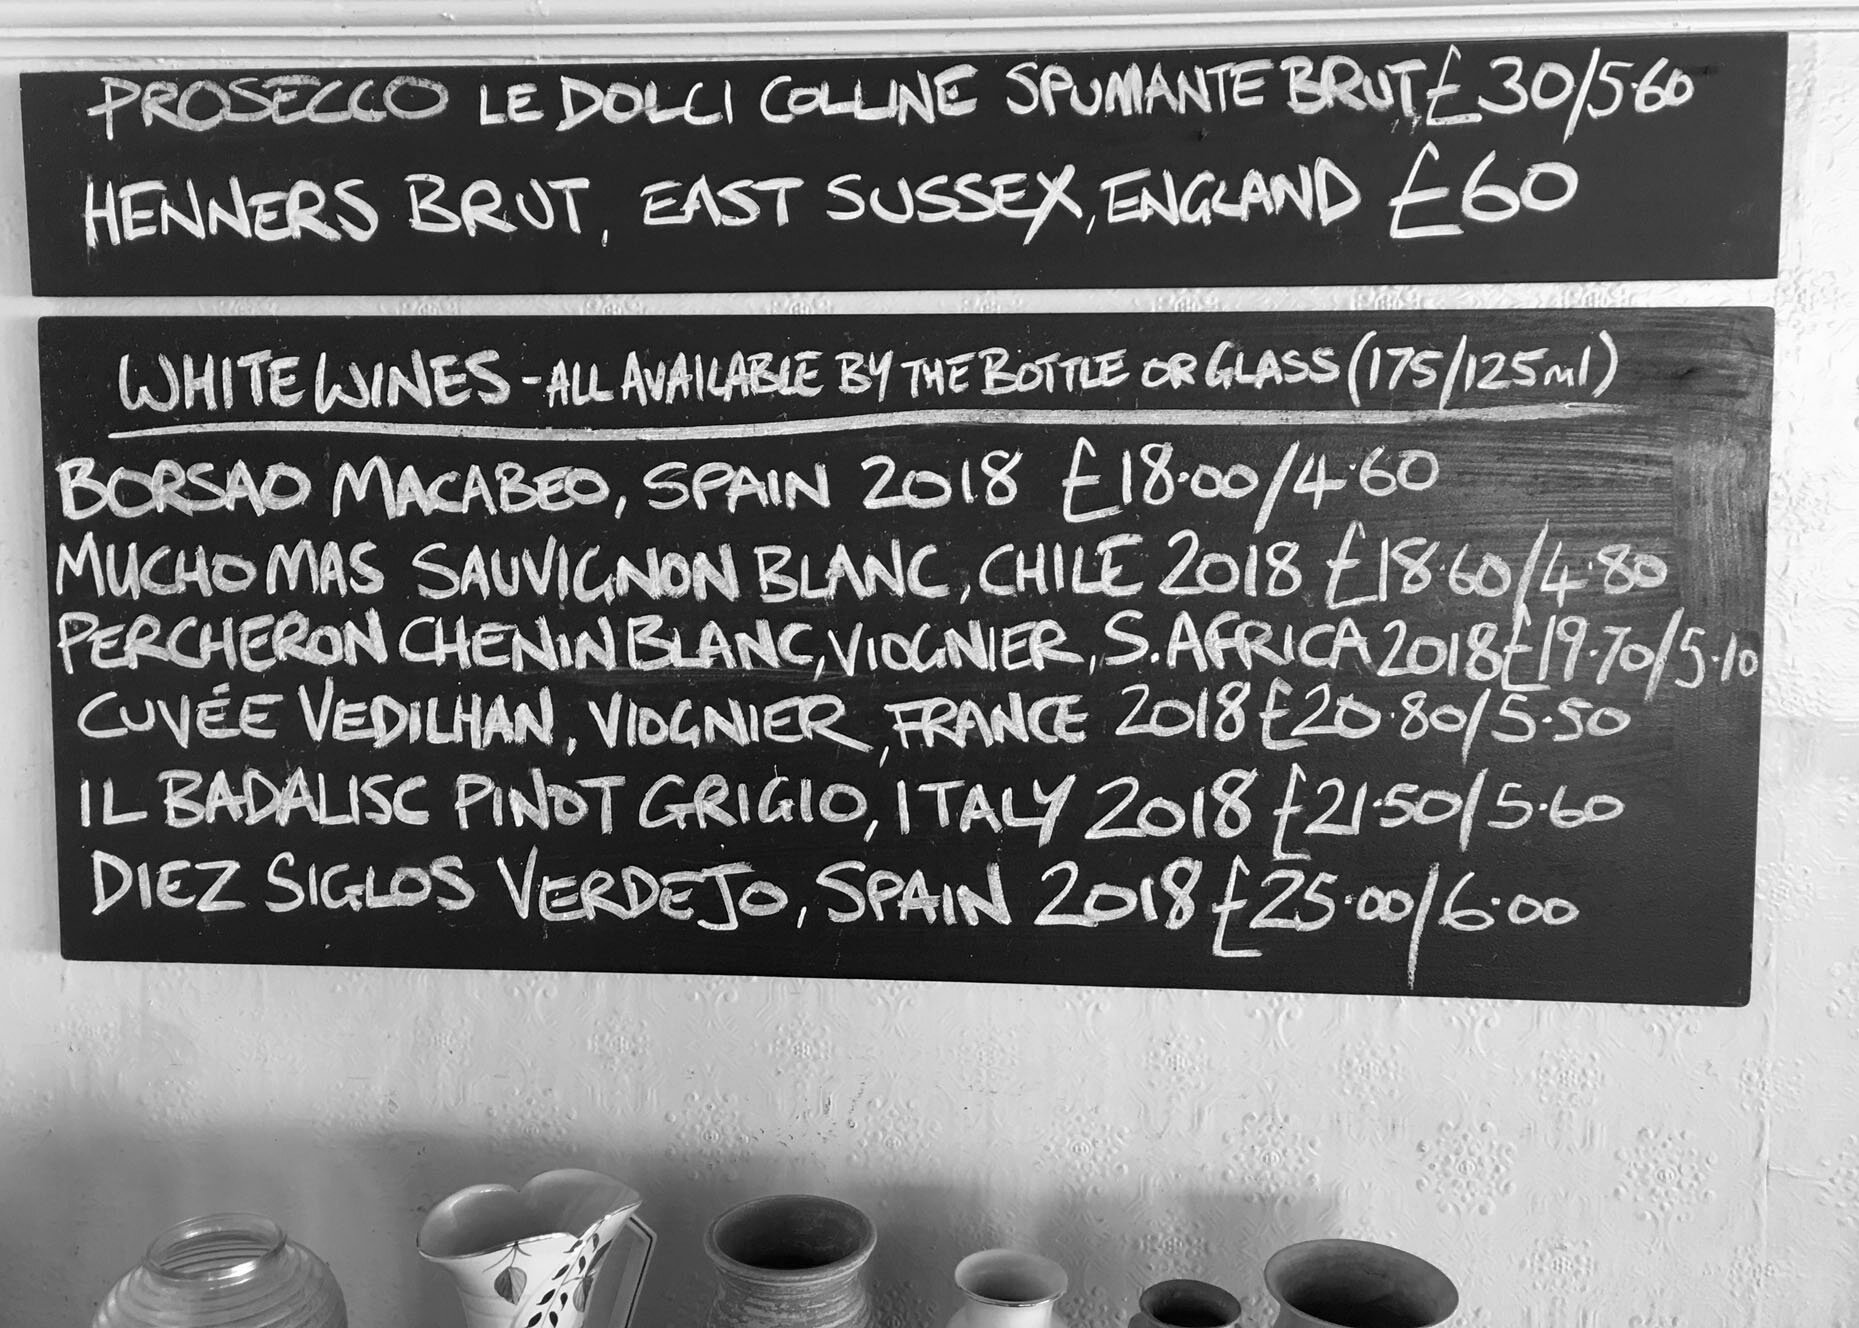 PROSECCO LE DOLCI COLLINE SPUMANTE BRUT, £30/5.60
HENNERS BRUT, EAST SUSSEX, ENGLAND £60
WHITE WINES - ALL AVAILABLE BY THE BOTTLE OR GLASS (175/125ml)
BORSAO MACABEO, SPAIN 2018 £18.00/4.60
MUCHO MAS SAUVIGNON BLANC, CHILE 2018 £18.60/4.80
PERCHERON CHENIN BLANC, VIOGNIER, S. AFRICA 2018 £19.70/5.10
CUVÉE VEDILHAN, VIOGNIER, FRANCE 2018 £20.80/5.50
IL BADALISC PINOT GRIGIO, ITALY 2018 £21.50/5.60
DIEZ SIGLOS VERDEJO, SPAIN 2018 £25.00/6.00